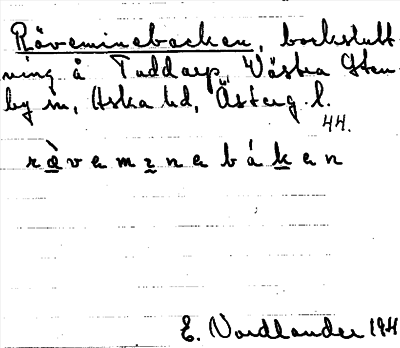 Röveminebacken, backslutt
ning å Tuddarp, Västra Sten
by sn, Aska hd, Österg. l.
44.
rövemınebákan
E. Nordlander 194